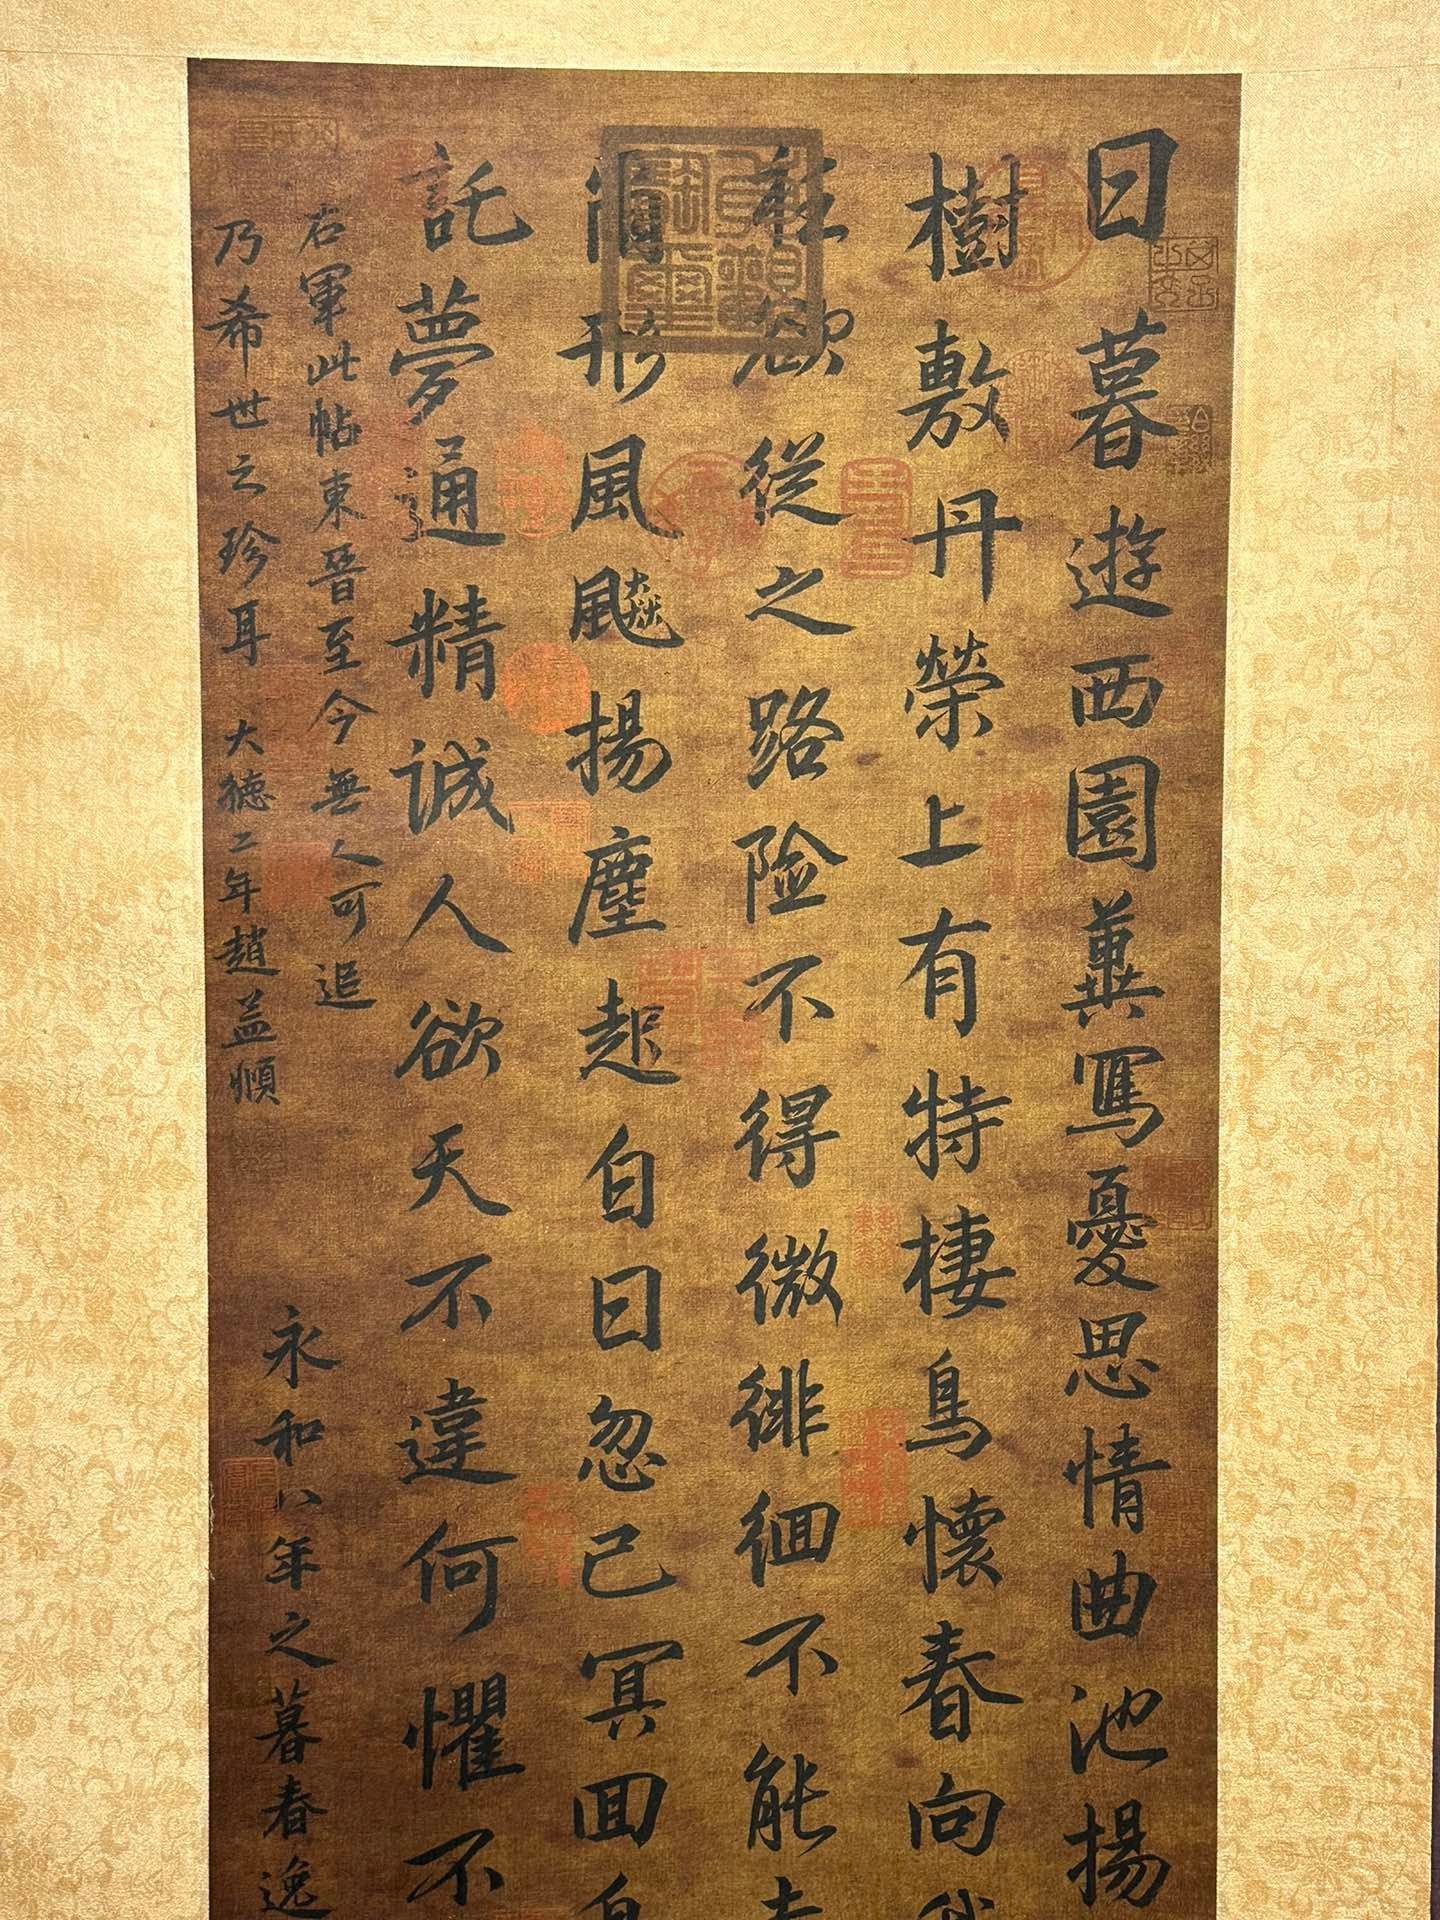 日暮遊西園冀寫憂思情曲池揚
樹敷丹榮上有特棲鳥懷春向我
衽欲從之路险不得徵徘徊不能去
爾形風飈揚塵起白日忽已冥回自
託夢通精誠人欲天不違何懼不
右軍此帖東晉至今無人可追
乃希世之珍耳 大德二年趙益順
永和八年之暮春逸